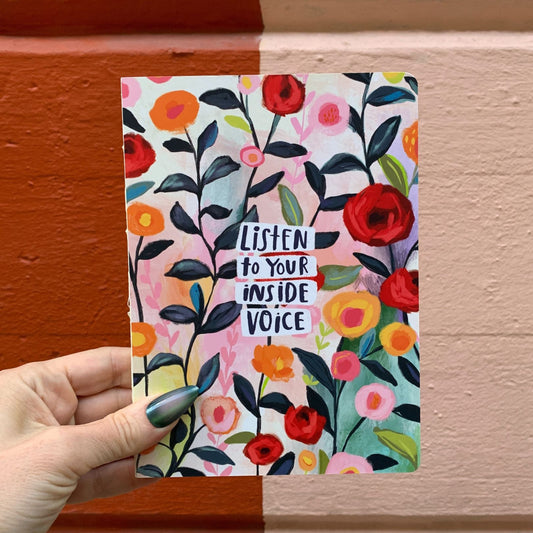 LISTEN
to YOUR
INSIDE
VOICE